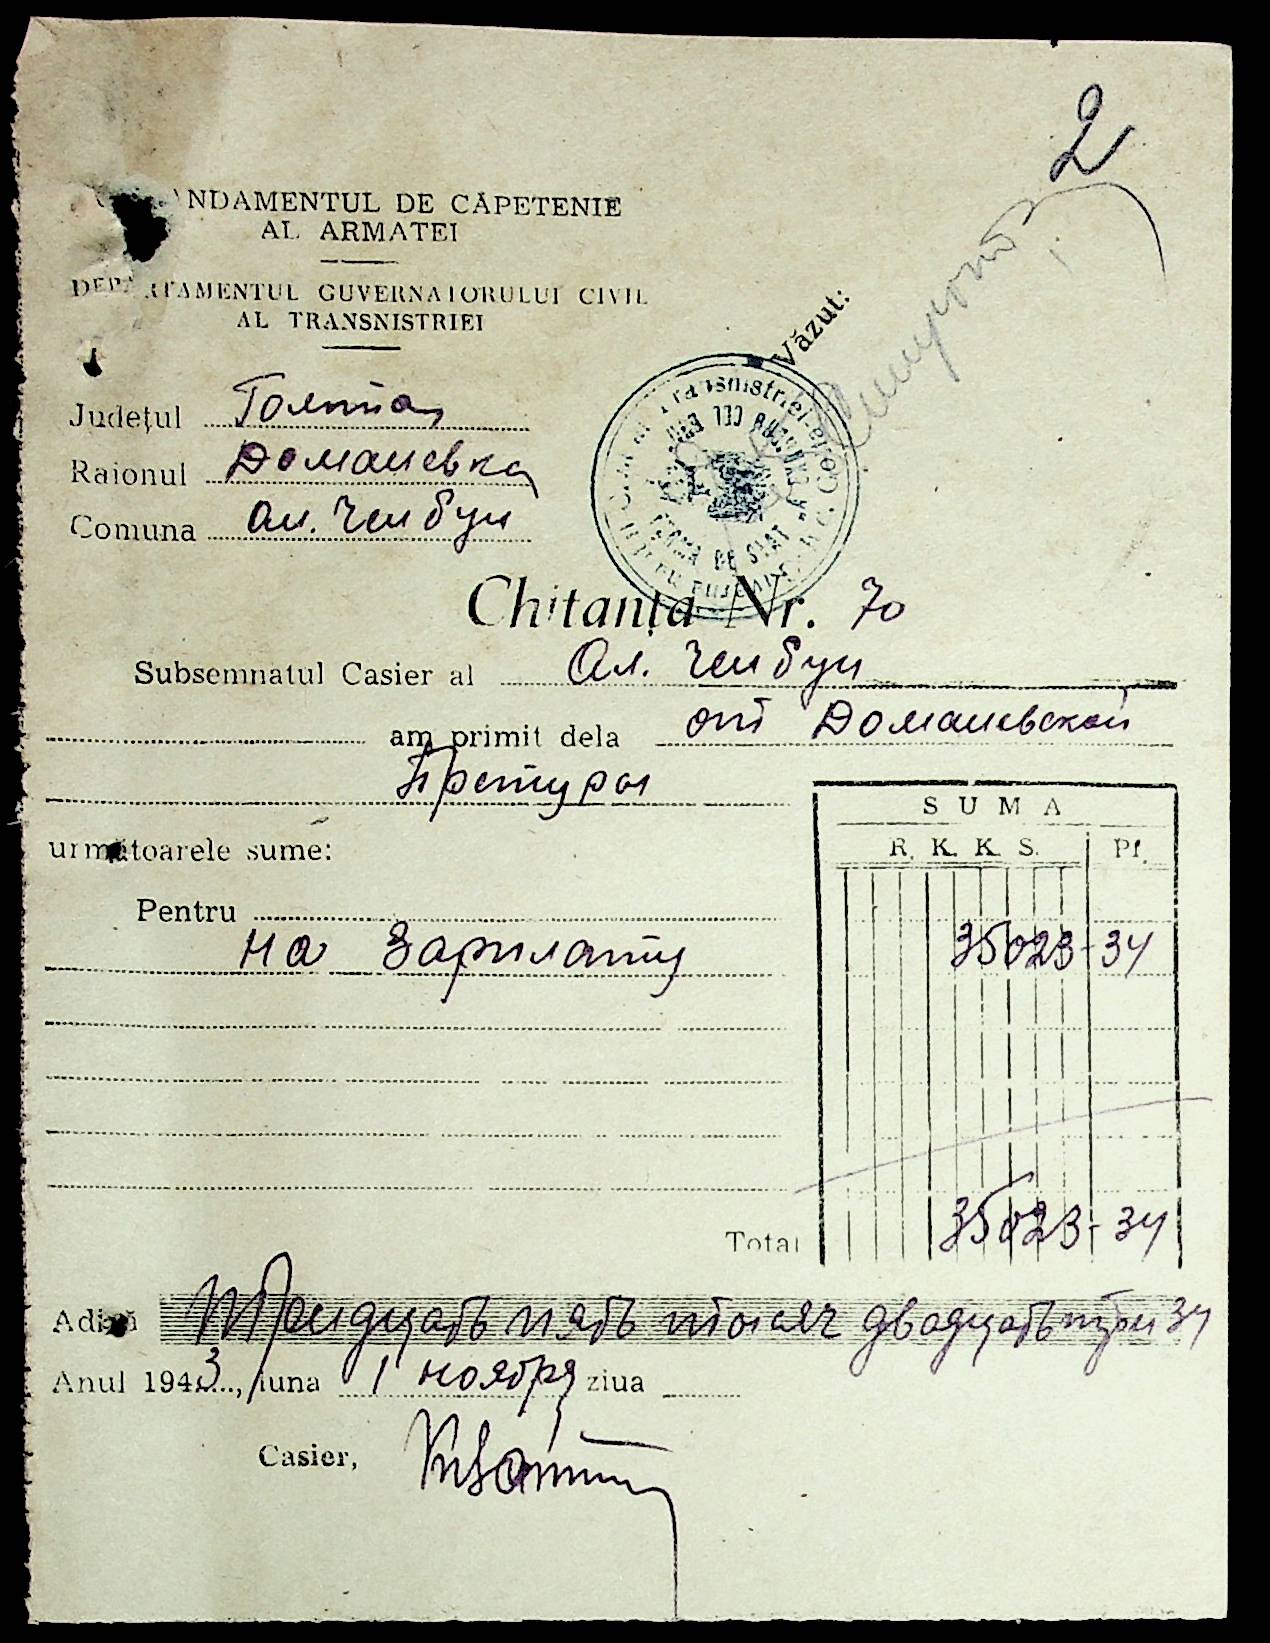 2
COMANDAMENTUL DE CĂPETENIE
AL ARMATEI
DEPARTAMENTUL GUVERNATORULUI CIVIL
AL TRANSNISTRIEI
Văzut:
Județul Голта
Raionul Домашевка
Comuna Ал. Чел Бун
FERMA DE STAT
Chitanța Nr. 70
Subsemnatul Casier al Ал. Чел Бун
am primit dela от Домашевской
Претуры
următoarele sume:
SUMA
R. K. K. S. Pf.
Pentru
на Зарплату 35023-34
Total 35023-34
Adică Тридцать пять тысяч двадцать три 34
Anul 1943, luna 1 ноября ziua
Casier,